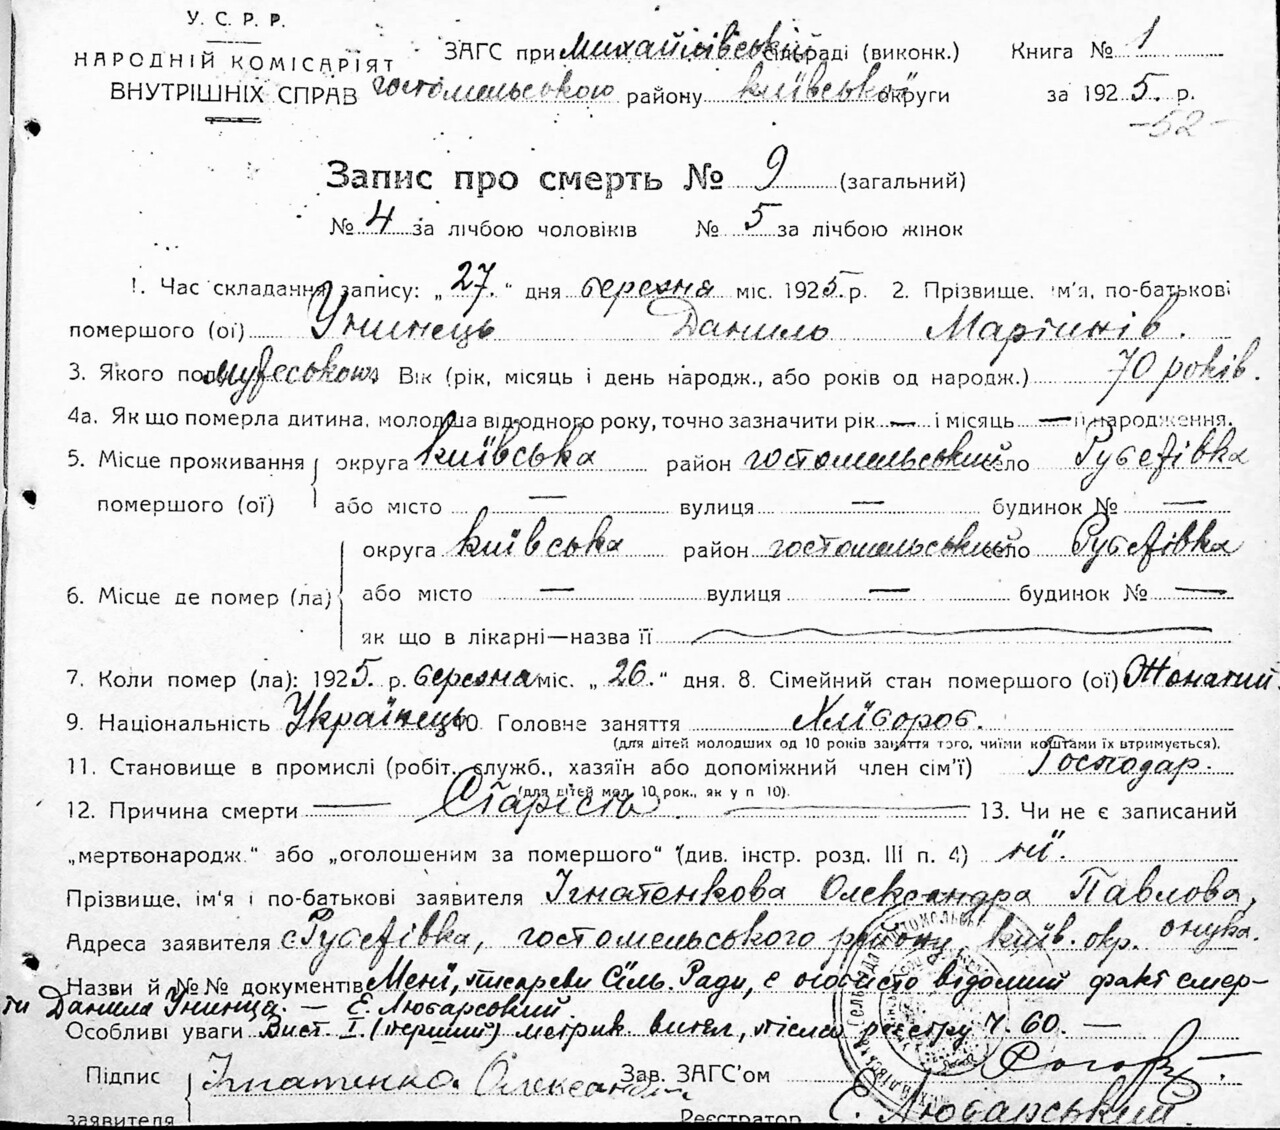 У. С. Р. Р.
НАРОДНІЙ КОМІСАРІЯТ
ВНУТРІШНІХ СПРАВ
ЗАГС при Михайлівській сільраді (виконк.) Книга № 1
гостомельською району київської округи за 1925. р.
-52-
Запис про смерть № 9 (загальний)
№ 4 за лічбою чоловіків № 5 за лічбою жінок
1. Час складання запису: „27." дня березня міс. 1925. р. 2. Прізвище, ім'я, по-батькові
помершого (ої) Унинець Данило Мартинів.
3. Якого полу мужеською Вік (рік, місяць і день народж., або років од народж.) 70 років.
4а. Як що померла дитина, молодша від одного року, точно зазначити рік — і місяць — її народження.
5. Місце проживання помершого (ої) округа київська район гостомельський село Рубежівка
або місто — вулиця — будинок № —
6. Місце де помер (ла) округа київська район гостомельський село Рубежівка
або місто — вулиця — будинок № —
як що в лікарні—назва її
7. Коли помер (ла): 1925. р. березня міс. „26." дня. 8. Сімейний стан помершого (ої) Жонатий.
9. Національність Українець 10 Головне заняття Хлібороб.
(для дітей молодших од 10 років заняття того, чиїми коштами їх втримується).
11. Становище в промислі (робіт., служб., хазяїн або допоміжний член сім'ї) Господар.
(для дітей мол. 10 рок., як у п 10).
12. Причина смерти — Старість. — 13. Чи не є записаний
„мертвонародж." або „оголошеним за помершого" (див. інстр. розд. III п. 4) ні.
Прізвище, ім'я і по-батькові заявителя Ігнатенкова Олександра Павлова,
Адреса заявителя с Рубежівка, гостомельського району, київ. окр. онука.
Назви й №№ документів Мені, писареви Сіль. Ради, є особисто відомий факт смер-
ти Данила Унинця. — Е. Любарський.
Особливі уваги Вист. I. (перший) метрик. випис, після реєстру ч. 60. —
Підпис заявителя Ігнатенко Олександ Зав. ЗАГС'ом
Реєстратор Є. Любарський.